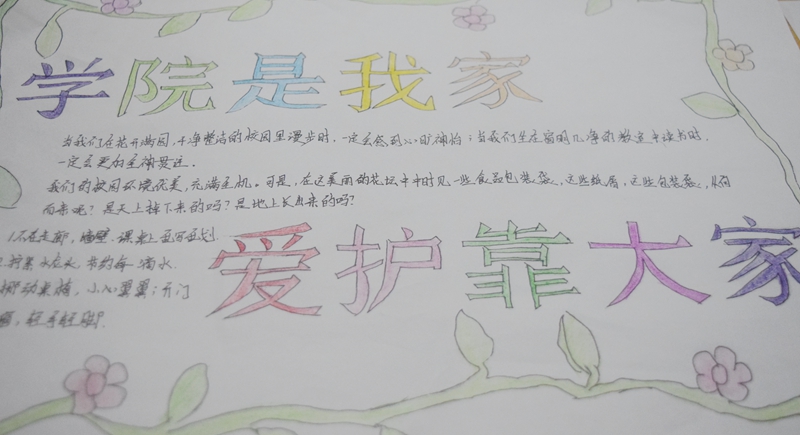 学院是我家
当我们在花开满园，干净整洁的校园里漫步时，一定会感到心旷神怡；当我们坐在窗明几净的教室中读书时，
一定会更加全神贯注。
我们的校园环境优美，充满生机。可是，在这美丽的花坛中时见一些食品包装袋，这些纸屑，这些包装袋，从何
而来呢？是天上掉下来的吗？是地上长出来的吗？
1.不在走廊，墙壁，课桌上乱写乱划.
水龙头，节约每一滴水.
挪动桌椅，小心翼翼；开门
，轻手轻脚.
爱护靠大家